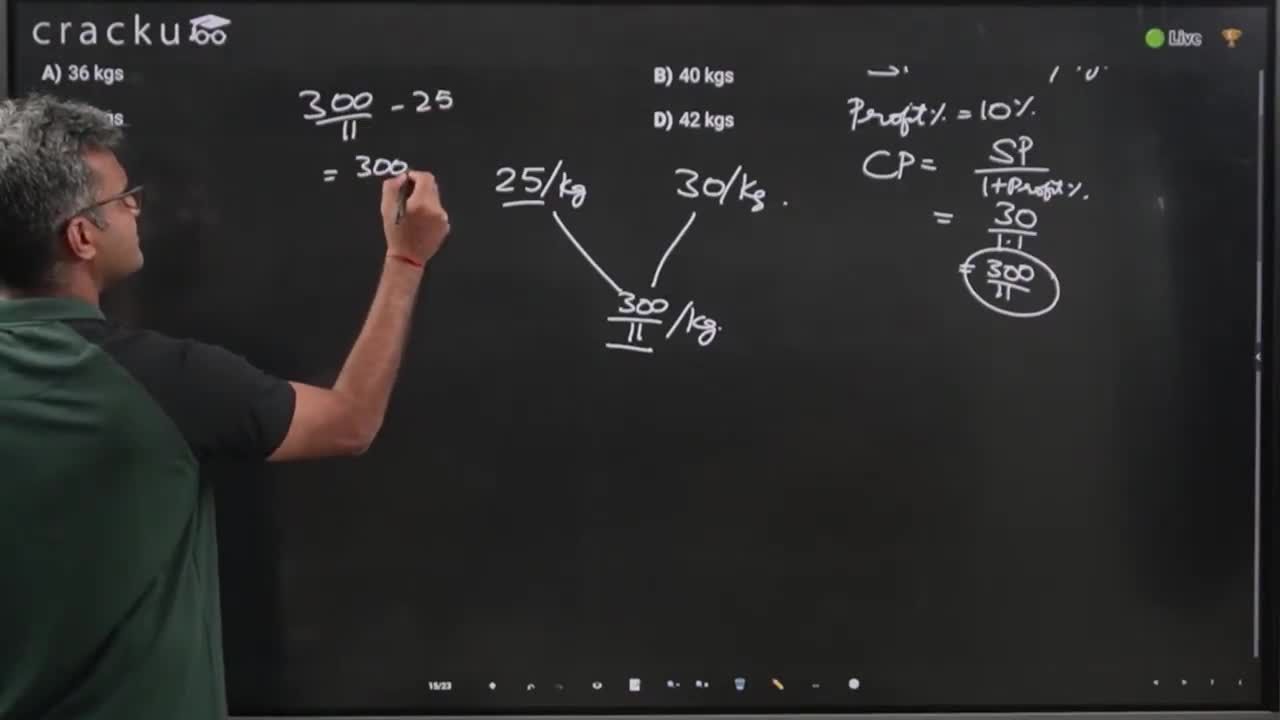 cracku
Live
A) 36 kgs
B) 40 kgs
D) 42 kgs
300/11 - 25
= 300
25/kg
30/kg.
300/11 /kg.
Profit% = 10%
CP = SP/1+Profit%.
= 30/1.1
= 300/11
15/23